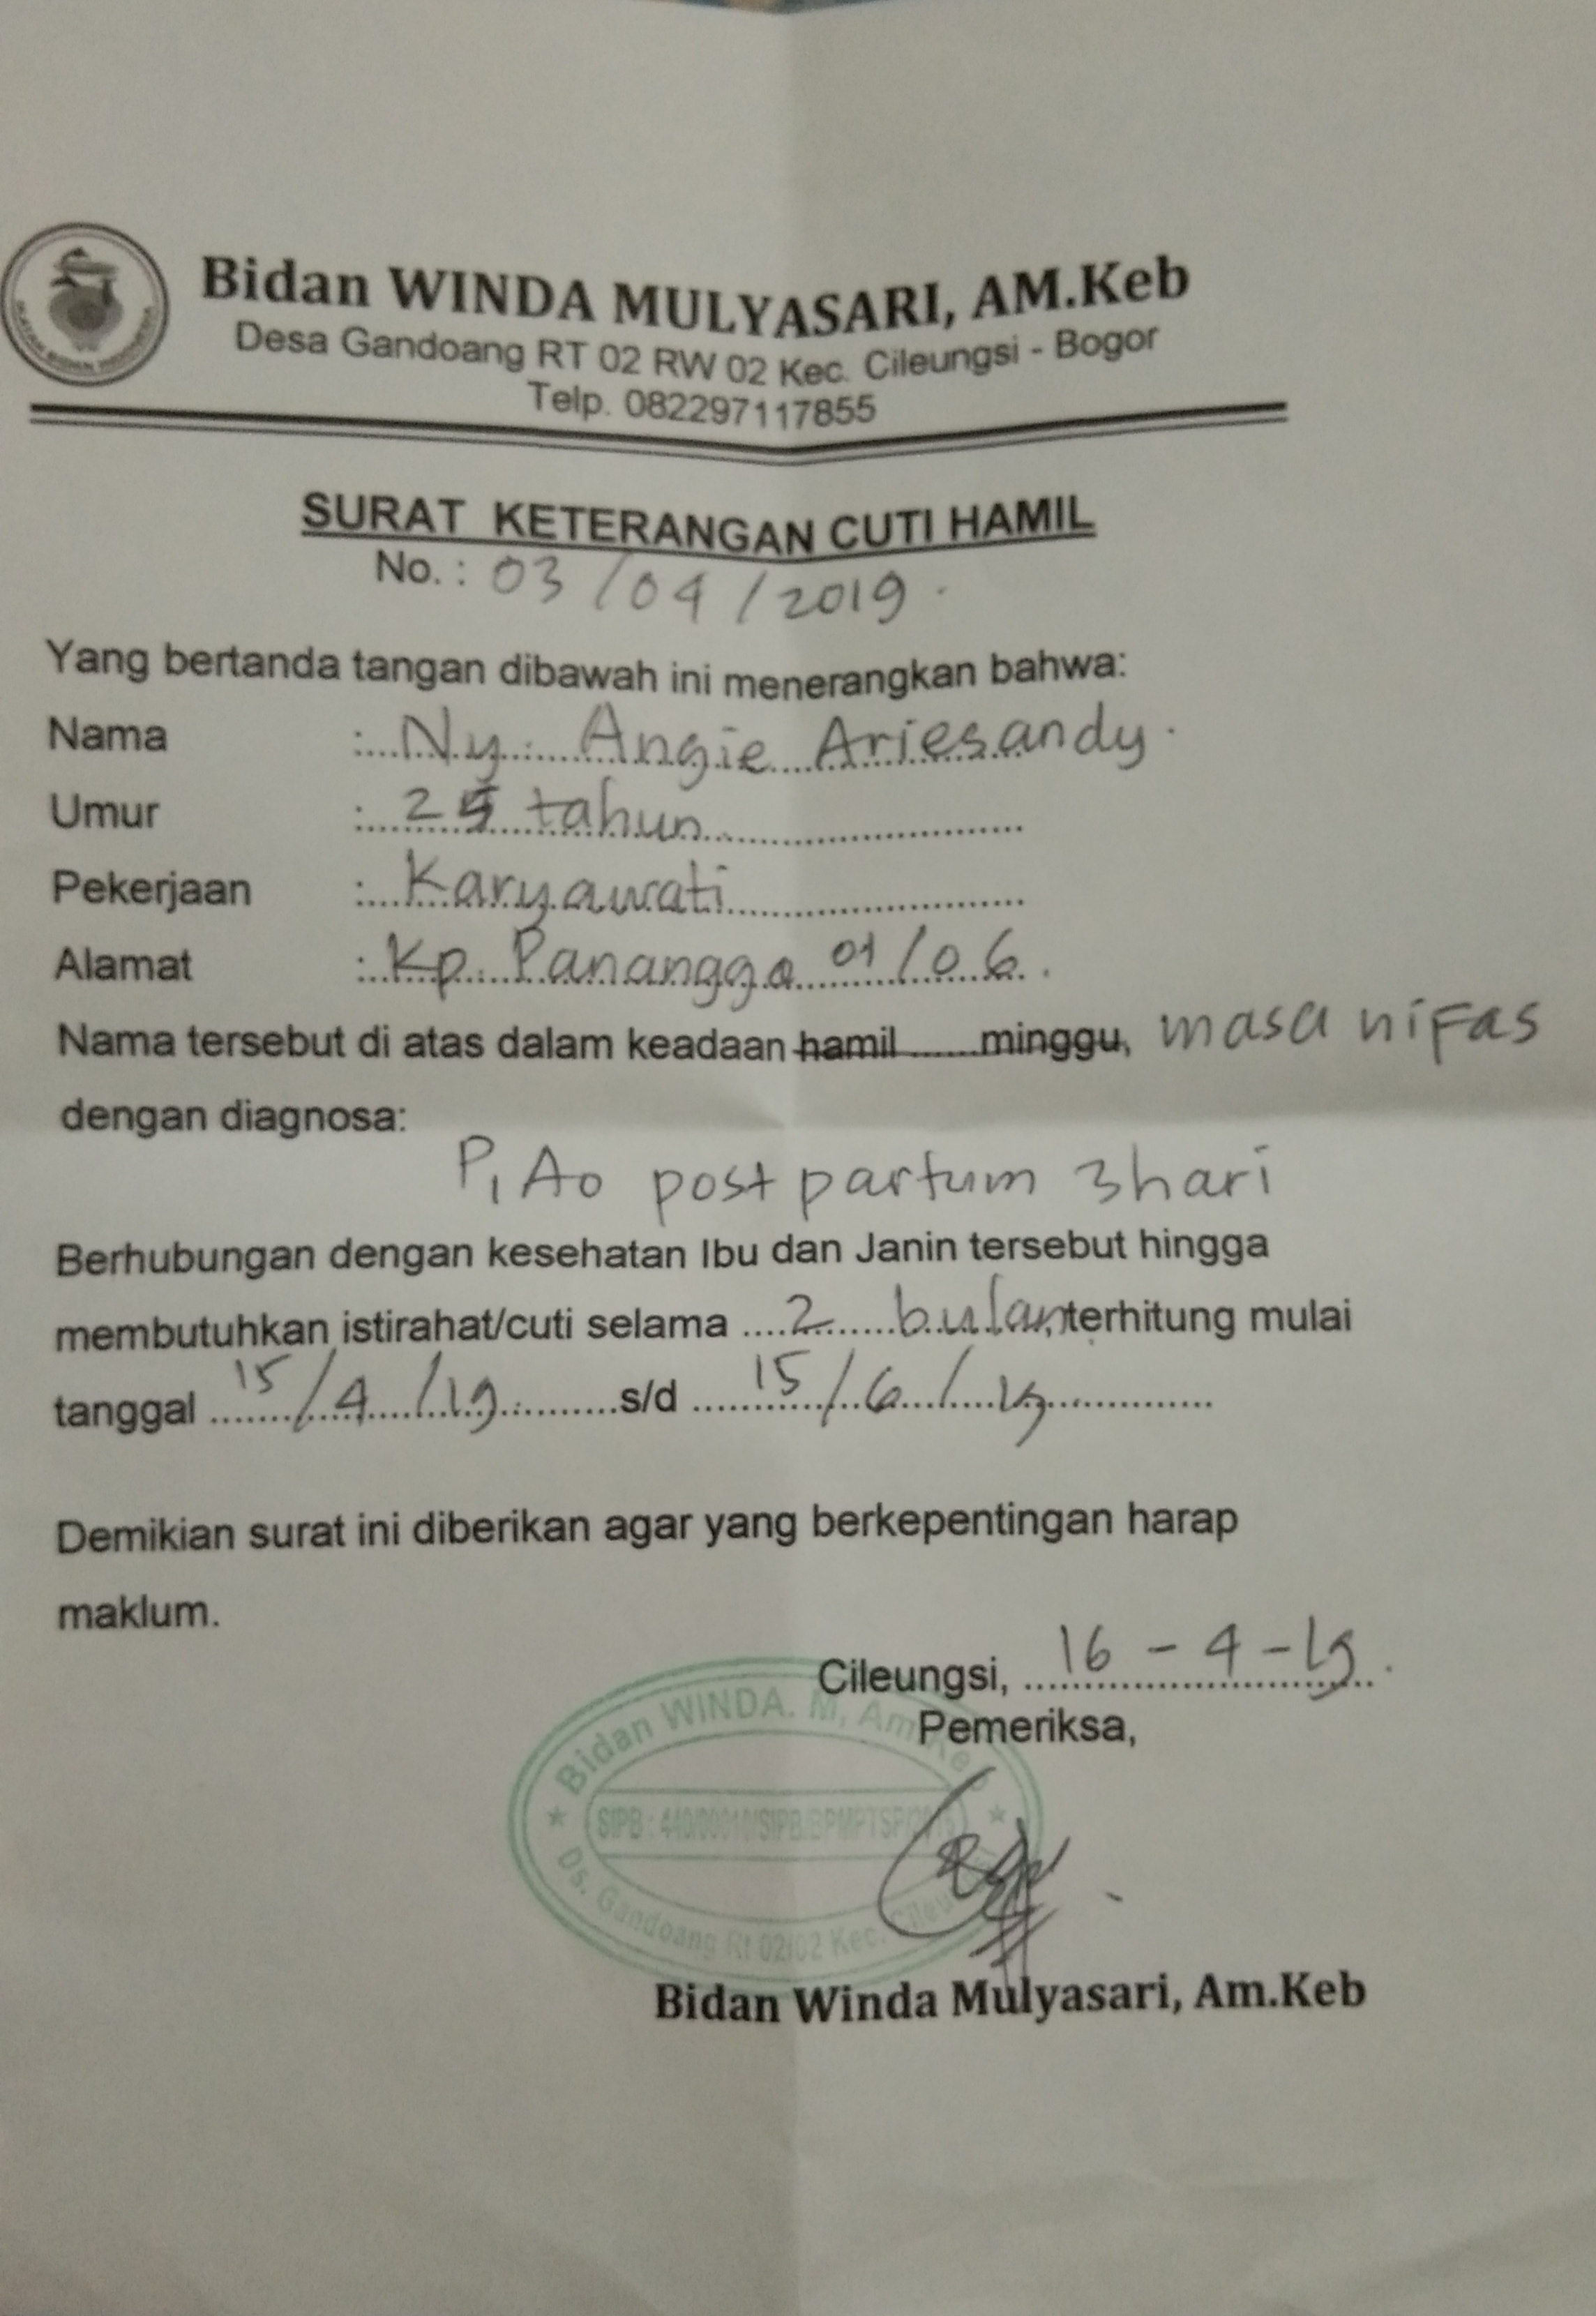 Bidan WINDA MULYASARI, AM.Keb
Desa Gandoang RT 02 RW 02 Kec. Cileungsi - Bogor
Telp. 082297117855
SURAT KETERANGAN CUTI HAMIL
No. : 03/04/2019.
Yang bertanda tangan dibawah ini menerangkan bahwa:
Nama : Ny. Angie Ariesandy.
Umur : 25 tahun
Pekerjaan : Karyawati
Alamat : Kp. Panangga 01/06.
Nama tersebut di atas dalam keadaan hamil ...... minggu, masa nifas
dengan diagnosa:
P1 A0 post partum 3 hari
Berhubungan dengan kesehatan Ibu dan Janin tersebut hingga
membutuhkan istirahat/cuti selama 2 bulan, terhitung mulai
tanggal 15/4/19 s/d 15/6/19
Demikian surat ini diberikan agar yang berkepentingan harap
maklum.
Cileungsi, 16-4-19.
Pemeriksa,
Bidan WINDA. M, Am.Keb
SIPB : 
Ds. Gandoang Rt 02/02 Kec. Cileungsi
Bidan Winda Mulyasari, Am.Keb